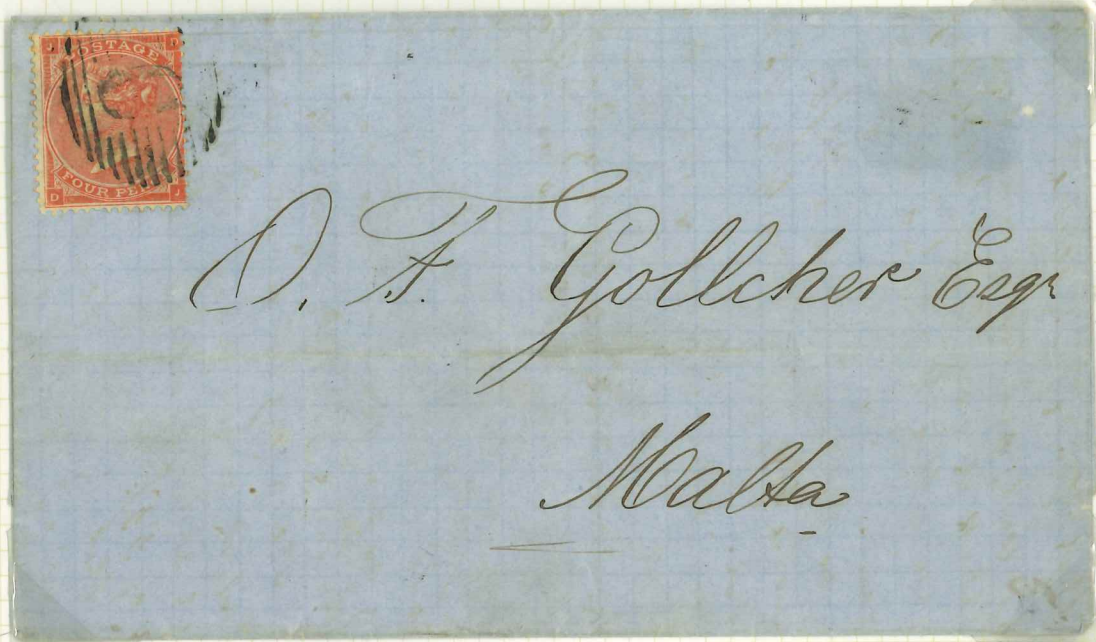 POSTAGE
FOUR PE
D J
O. F. Gollcher Esqr
Malta